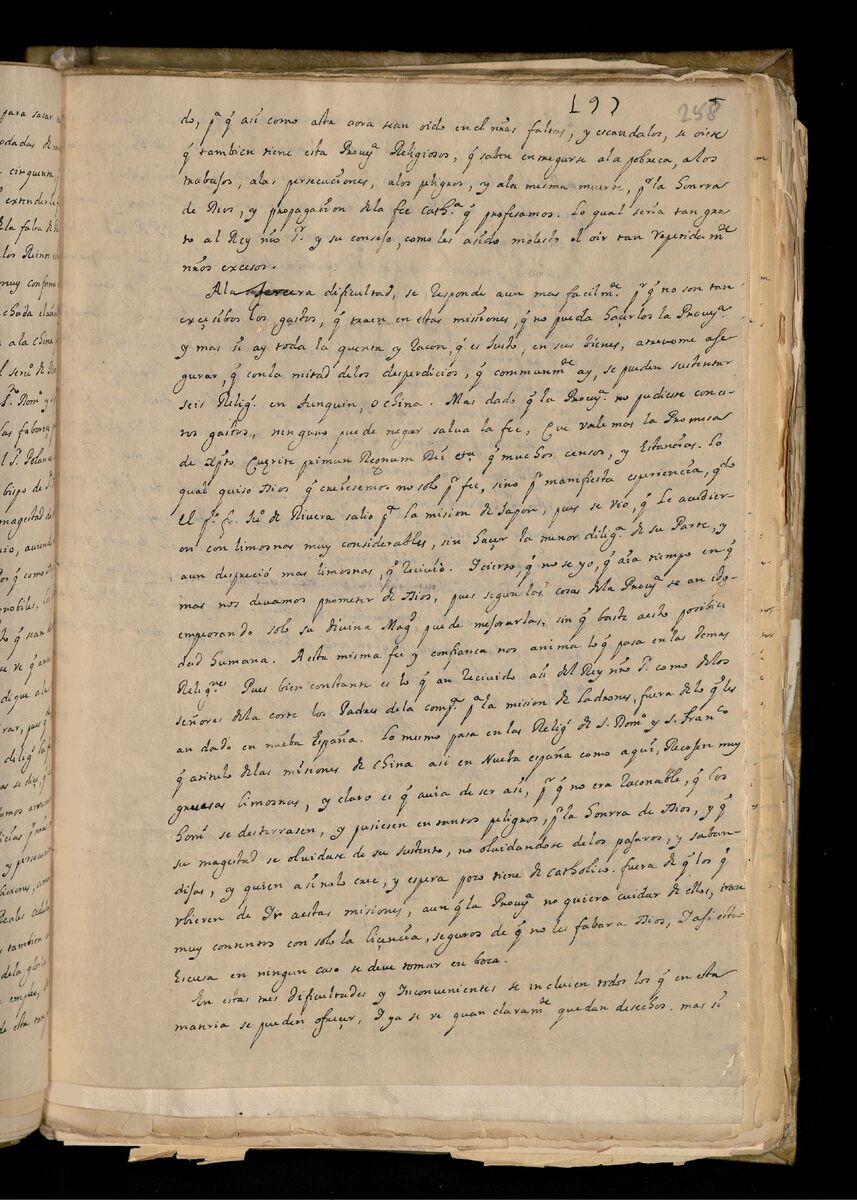 197
258
do, pª q̃ asi como asta aora sean oido en el nr̃as faltas, y escandalos, se oiese
q̃ tambien tiene esta Prouª Religiosos, q̃ saben entregarse ala pobreça, alos
trabajos, alas persecuciones, alos peligros, y ala misma muerte, pr la honrra
de Dios, y propagacion dela fee cathª q̃ profesamos. Lo qual seria tan gra-
to al Rey nr̃o Sr. y su consejo, como les asido molesto el oir tan repetidamte
nr̃os excesos.
Ala tercera dificultad, se responde aun mas facilmte. pr q̃ no son tan
excesibos los gastos, q̃ traen en estas missiones, q̃ no pueda haçerlos la Prouª.
y mas si ay toda la quenta y raçon, q̃ es justo, en sus bienes, atreuome ase-
gurar, q̃ con la mitad delos desperdicios, q̃ communmte ay, se pueden sustentar
seis Religs. en tunquin, o china. Mas dado q̃ la Prouª. no pudiesse con es-
tos gastos, ninguno puede negar salua la fee, que vale mas la Promesa
de Xpto, Quęrite primum Regnum Dei etª q̃ muchos censos, y Estancias. Lo
qual quiso Dios q̃ creiesemos no solo pr fee, sino pr manifiesta esperiencia, qdo
el Pe. fr. Juº de Riuera salio pª la mision de Japon, pues se vio, q̃ le acudier-
on con limosnas muy considerables, sin haçer la menor diligª de su Parte, y
aun despreció mas limosnas, q̃ reciuio. I cierto, q̃ no se yo, q̃ aia tiempo en q̃
mas nos deuamos prometer de Dios, pues segun las cosas dela Prouª se an ido
empeorando solo su diuina Magd puede mejorarlas, sin q̃ baste aesto posibili-
dad humana. A esta misma fee y confiança nos anima lo q̃ pasa en las demas
Religes. Pues bien constante es lo q̃ an reciuido asi del Rey nr̃o Sr. como delos
señores dela corte los Padres dela compª. pª la mision de Ladrones, fuera delo q̃ les
an dado en nueba España. Lo mesmo pasa en las Religs de S. Domº y S. Franco
q̃ atitulo delas misiones de China asi en Nueba españa como aqui, Recojen muy
gruesas limosnas, y claro es q̃ auia de ser asi, pr q̃ no era raconable, q̃ los
homs se desterrasen, y pusiesen en tantos peligros, pr la honrra de Dios, y q̃
su magestad se oluidase de su sustento, no oluidandose delos pajaros, y saban-
dijas, y quien asi no lo cree, y espera poco tiene de catholico. fuera de q̃ los q̃
vbieren de Ir aestas misiones, aun q̃ la Prouª no quiera cuidar de ellos, iran
muy contentos con solo la licencia, seguros de q̃ no les faltara Dios, I asi esta
Escusa en ningun caso se deve tomar en boca.
En estas tres dificultades y Inconuenientes se incluien todos los q̃ en esta
materia se pueden ofreçer, I ya se ve quan claramte quedan desechos. mas si